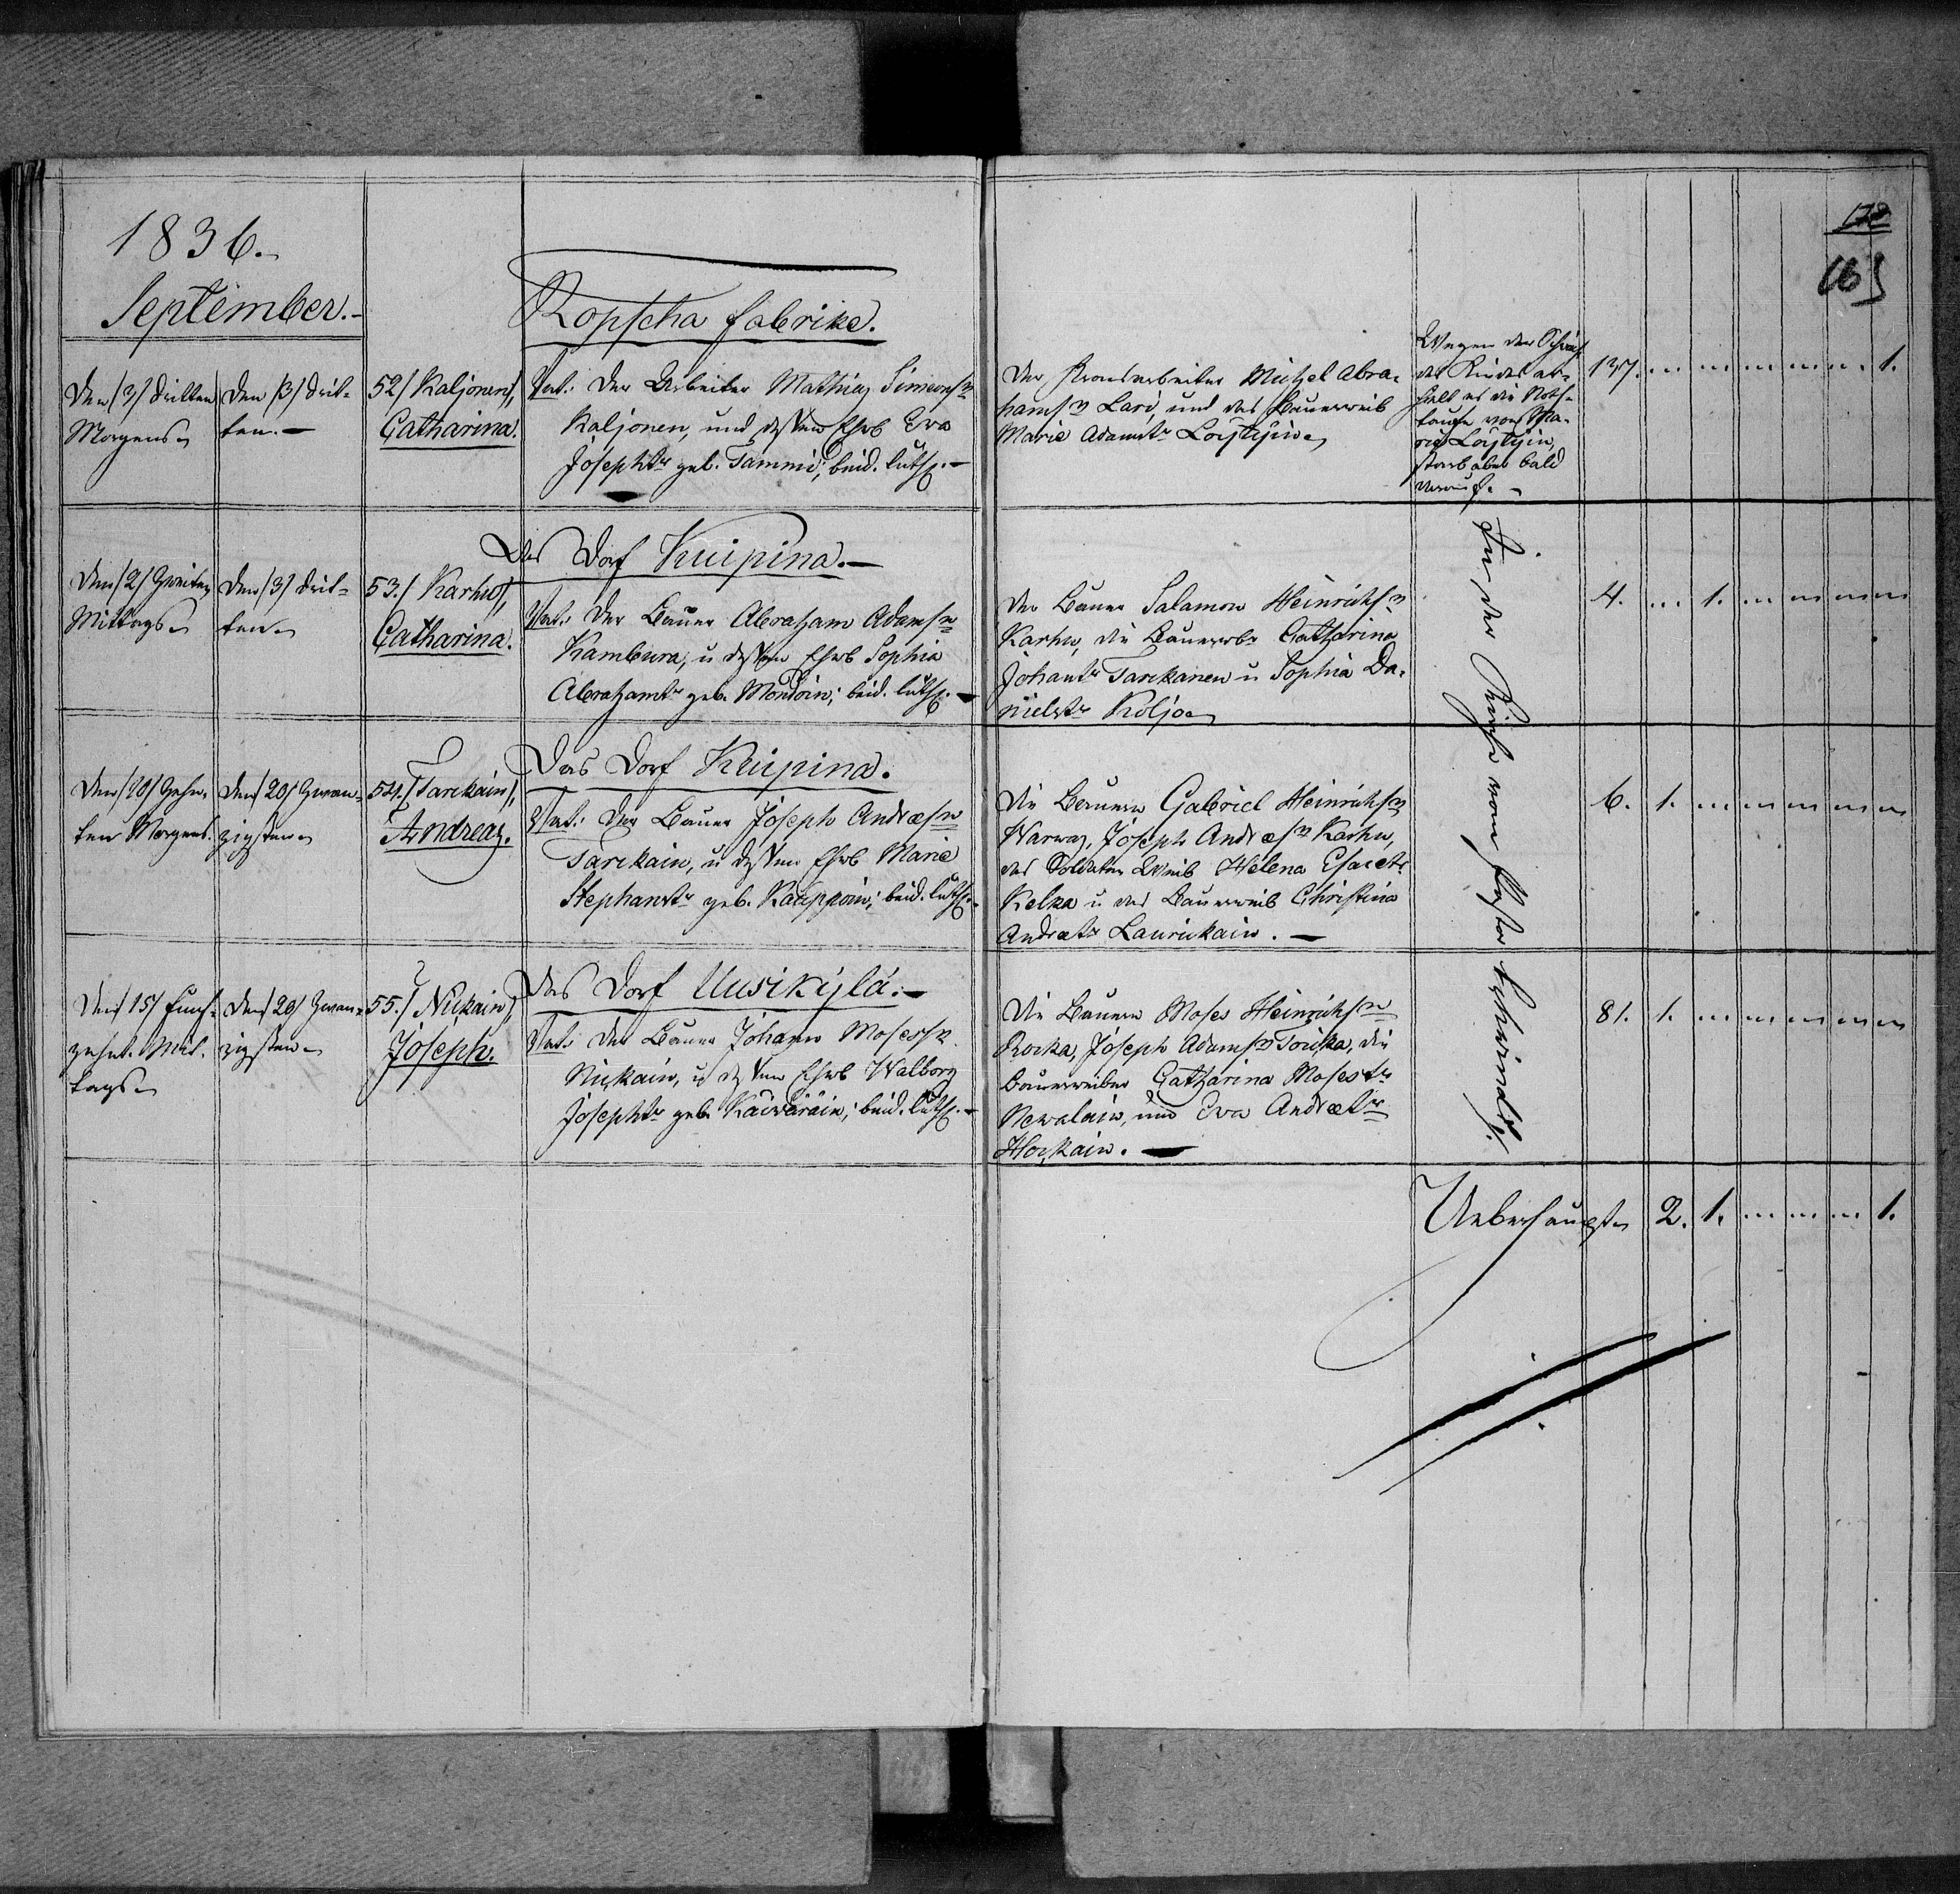 1836.
September.
Ropscha fabrike.
Den /3/ dritten
Morgens
Den /3/ drit-
ten.
52/ Kaljonen/,
Catharina.
Vat: Der Arbeiter Mathias Simons
Kaljonen, und dessen Ehwb Eva
Josephtr geb. Tammi; beid. luth.
Der Kronsarbeiter Michel Abra-
hams Lari, und das Bauerweib
Marie Adamstr
Wegen der Schwäche
des Kindes er-
hielt es die Noth-
taufe von Ma-
ria
starb aber bald
darauf.
137. 1.
Das Dorf Kuipina.
Den /2/ Zweiten
Mittags
Den /3/ drit-
ten
53./ Karhu/,
Catharina.
Vat: Der Bauer Abraham Adams
Kambura, u dessen Ehwb Sophia
Abrahamtr geb. Mondoin; beid. luth.
Der Bauer Salamon Heinrichs
Karhu, die Bauerwbr Catharina
Johantr Tarikanen u Sophia Da-
nielstr Koljo
4. 1.
In der Kirche vom Pastor
Das Dorf Kuipina.
Den /10/ Zehn-
ten Morgens.
Den /20/ Zwan-
zigsten
54./ Tarikain/,
Andreas.
Vat: Der Bauer Joseph Andres
Tarikain, u dessen Ehwb Marie
Stephanstr geb. Kauppoin; beid. luth.
Die Bauern Gabriel Heinrichs
Warwas, Joseph Andres Karhu,
das Soldaten Weib Helena Esaietr
Kelka u das Bauerweib Christina
Andretr Laurikain.
6. 1.
Das Dorf Uusikylä.
Den /15/ Funf-
zehnt. Mit-
tags
Den /20/ Zwan-
zigsten
55./ Nukain/
Joseph.
Vat: Der Bauer Johann Moses
Nukain, u dessen Ehwb Walborg
Josephtr geb. Käiwäräin; beid. luth.
Die Bauern Moses Heinrichs
Rocka, Joseph Adams Toucka, die
Bauerweiber Catharina Mosestr
Newalain, und Eva Andretr
Hockain.
81. 1.
Ueberhaupt 2. 1. 1.